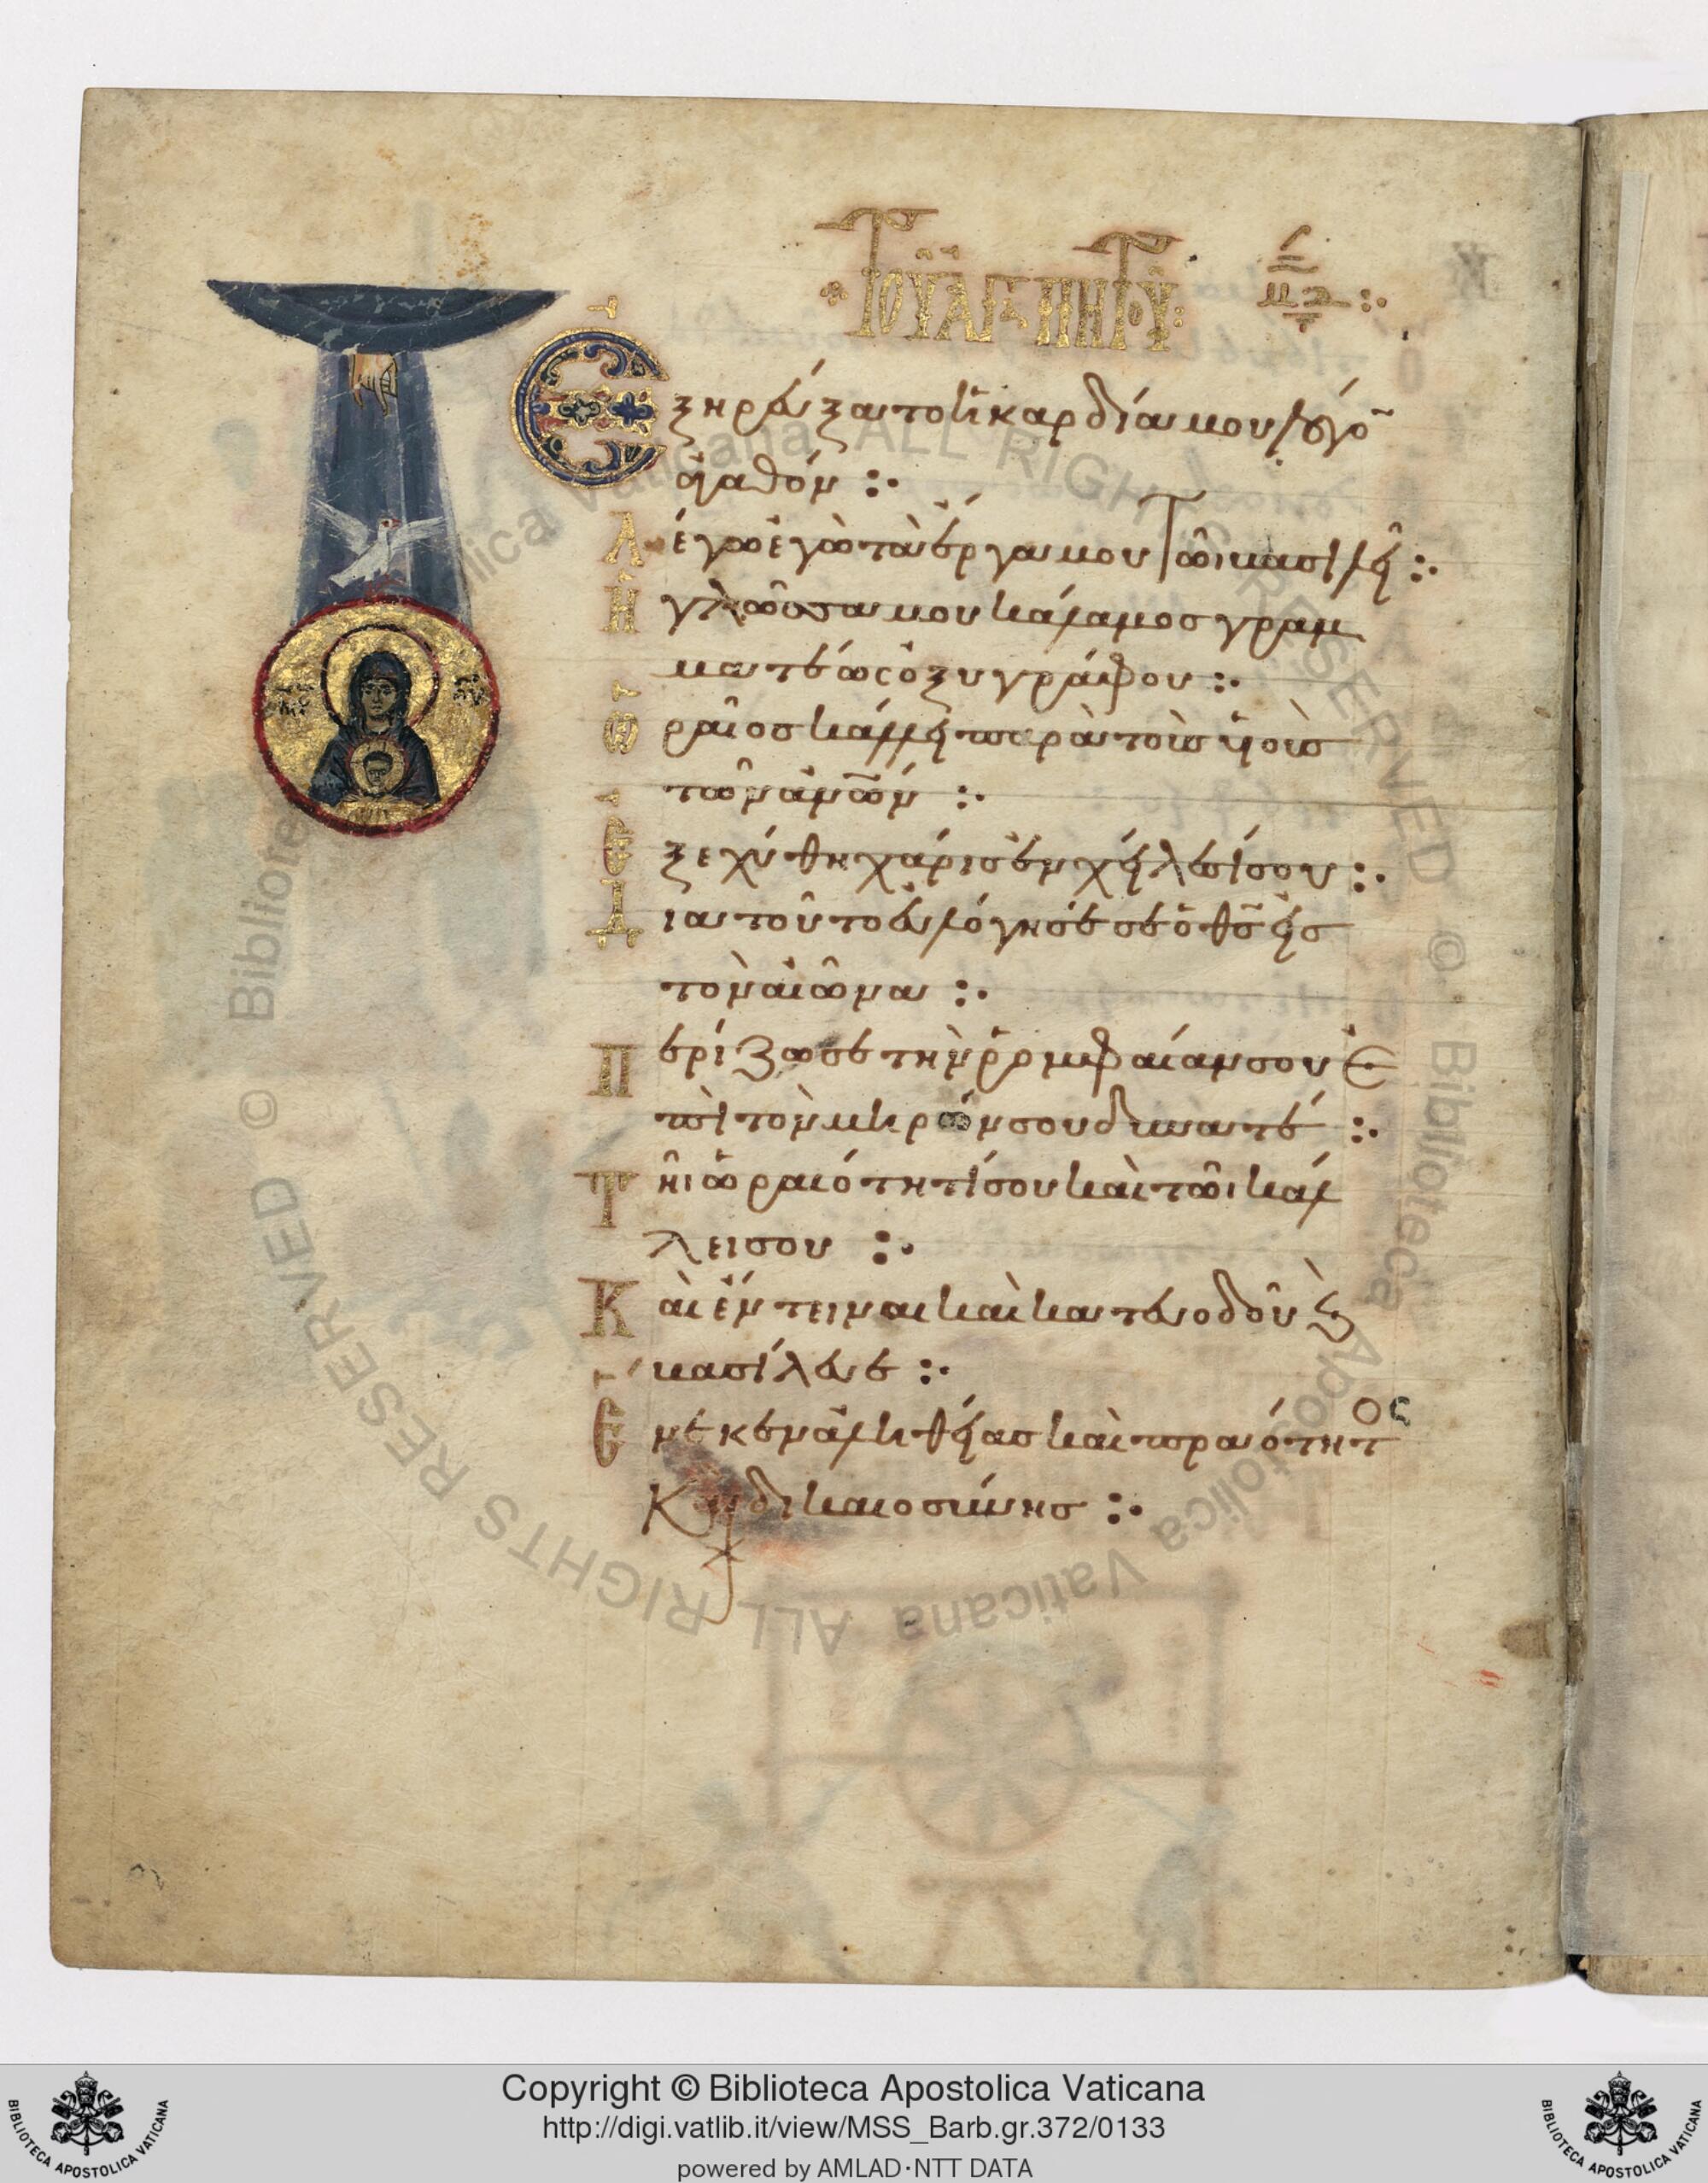 ΤΟΥ ἈΓΑΠΗΤΟΥ: ΜΔ :·
Ἐξηρεύξατο ἡ καρδία μου λόγο̄
ἀγαθόν :·
Λέγω ἐγὼ τὰ ἔργα μου τῶι βασιλεῖ :·
Ἡ γλῶσσα μου κάλαμος γραμ
ματέως ὀξυγράφου :·
Ὡραῖος κάλλει παρὰ τοὺς υἱοὺς
τῶν ἀνω̅ν :·
Ἐξεχύθη χάρις ἐν χείλεσί σου :·
Διατοῦτο εὐλόγησέ σε ὁ θ̅ς εἰς
τὸν αἰῶνα :·
Περίζωσε τὴν ῥομφαίαν σου ἐ
πὶ τὸν μηρόν σου δυνατέ :·
Τῆι ὡραιότητί σου καὶ τῶι κάλ
λει σου :·
Καὶ ἔντειναι καὶ κατευοδοῦ ϗ
βασίλευε :·
Ἕνεκεν ἀληθείας καὶ πραότητος
Καὶ δικαιοσύνης :·
Copyright © Biblioteca Apostolica Vaticana
http://digi.vatlib.it/view/MSS_Barb.gr.372/0133
powered by AMLAD·NTT DATA
BIBLIOTECA APOSTOLICA VATICANA
BIBLIOTECA APOSTOLICA VATICANA
© Biblioteca Apostolica Vaticana ALL RIGHTS RESERVED © Biblioteca Apostolica Vaticana ALL RIGHTS RESERVED